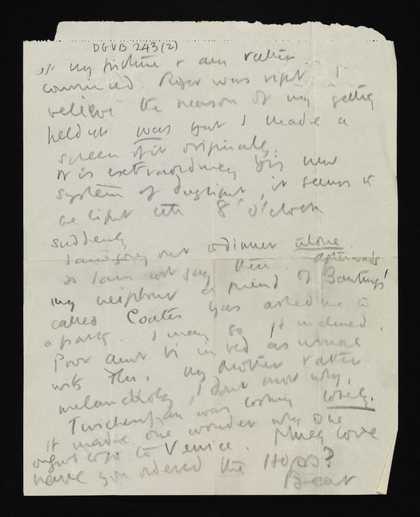 DGVB 243(2)
of my picture & am rather
convinced Roger was right I
believe the reason of my getting
held up was that I made a
screen of it originally.
It is extraordinary this new
system of daylight, it seems to
be light till 8 o'clock
suddenly
I am going out to dinner alone
so I am not gay then afterwards
my neighbour a friend of Bantings'
called Coates has asked me to
a party. I may go if inclined.
Poor aunt Vi in bed as usual
with Flu. My mother rather
melancholy I dont know why.
Twickenham was looking lovely.
it made one wonder why one
ought to go to Venice. Much love
have you ordered the Hops?